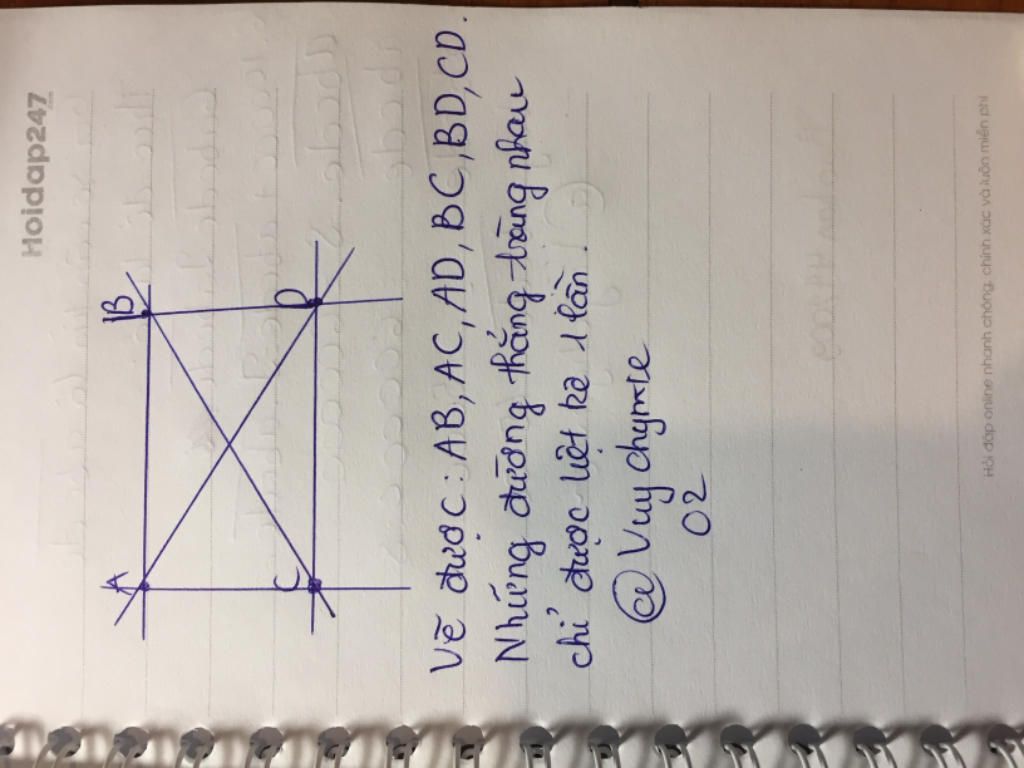 Hoidap247
A
B
C
D
Vẽ được: AB, AC, AD, BC, BD, CD.
Những đường thẳng trùng nhau
chỉ được liệt kê 1 lần.
@Vuychymte
02
Hỏi đáp online nhanh chóng, chính xác và luôn miễn phí